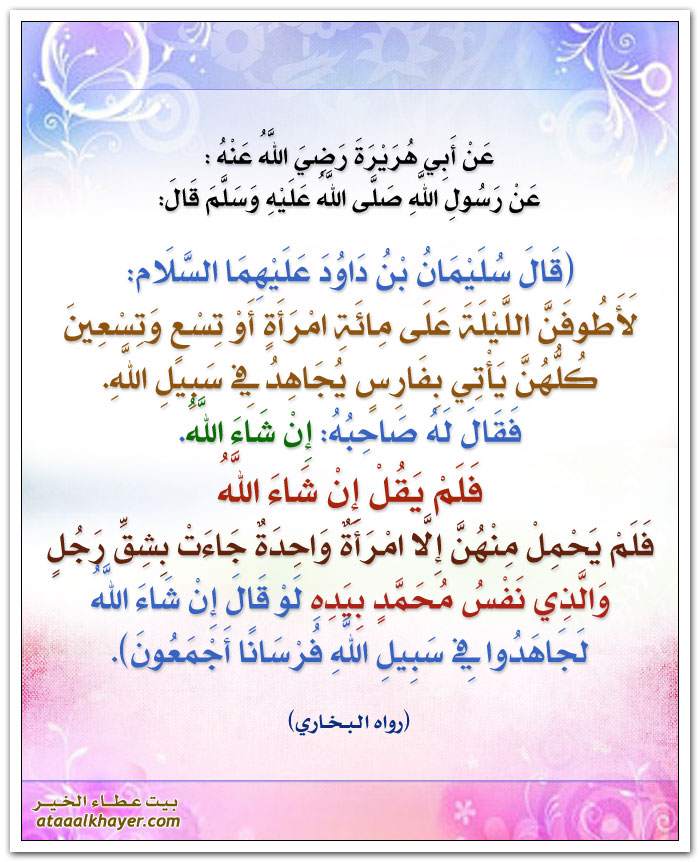 عَنْ أَبِي هُرَيْرَةَ رَضِيَ اللَّهُ عَنْهُ :
عَنْ رَسُولِ اللَّهِ صَلَّى اللَّهُ عَلَيْهِ وَسَلَّمَ قَالَ:
(قَالَ سُلَيْمَانُ بْنُ دَاوُدَ عَلَيْهِمَا السَّلَام:
لَأَطُوفَنَّ اللَّيْلَةَ عَلَى مِائَةِ امْرَأَةٍ أَوْ تِسْعٍ وَتِسْعِينَ
كُلُّهُنَّ يَأْتِي بِفَارِسٍ يُجَاهِدُ فِي سَبِيلِ اللَّهِ.
فَقَالَ لَهُ صَاحِبُهُ: إِنْ شَاءَ اللَّهُ.
فَلَمْ يَقُلْ إِنْ شَاءَ اللَّهُ
فَلَمْ يَحْمِلْ مِنْهُنَّ إِلَّا امْرَأَةٌ وَاحِدَةٌ جَاءَتْ بِشِقِّ رَجُلٍ
وَالَّذِي نَفْسُ مُحَمَّدٍ بِيَدِهِ لَوْ قَالَ إِنْ شَاءَ اللَّهُ
لَجَاهَدُوا فِي سَبِيلِ اللَّهِ فُرْسَانًا أَجْمَعُونَ).
(رواه البخاري)
بيت عطاء الخير
ataaalkhayer.com